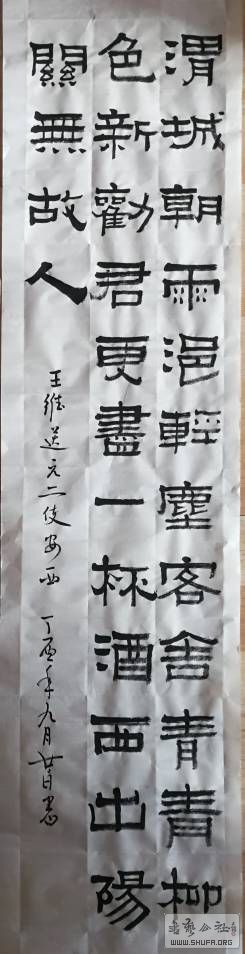 渭城朝雨浥輕塵客舍青青柳
色新勸君更盡一杯酒西出陽
關無故人
王維送元二使安西 丁酉年九月廿日書
WWW.SHUFA.ORG